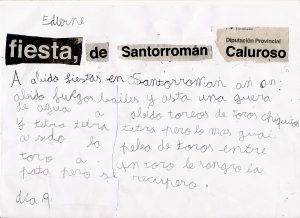 Ederne
fiesta, de Santorromán Caluroso
Diputación Provincial
A abido fiestas en Santorroman an en
abido fuegos bailes y asta una guera
de agua a abido toreos de toros chiquitos
y tetra tetra tetra pero lo mas guai
a sido la pelea de toros entre
toro a un toro le sangro la
pata pero se recupero.
día 9